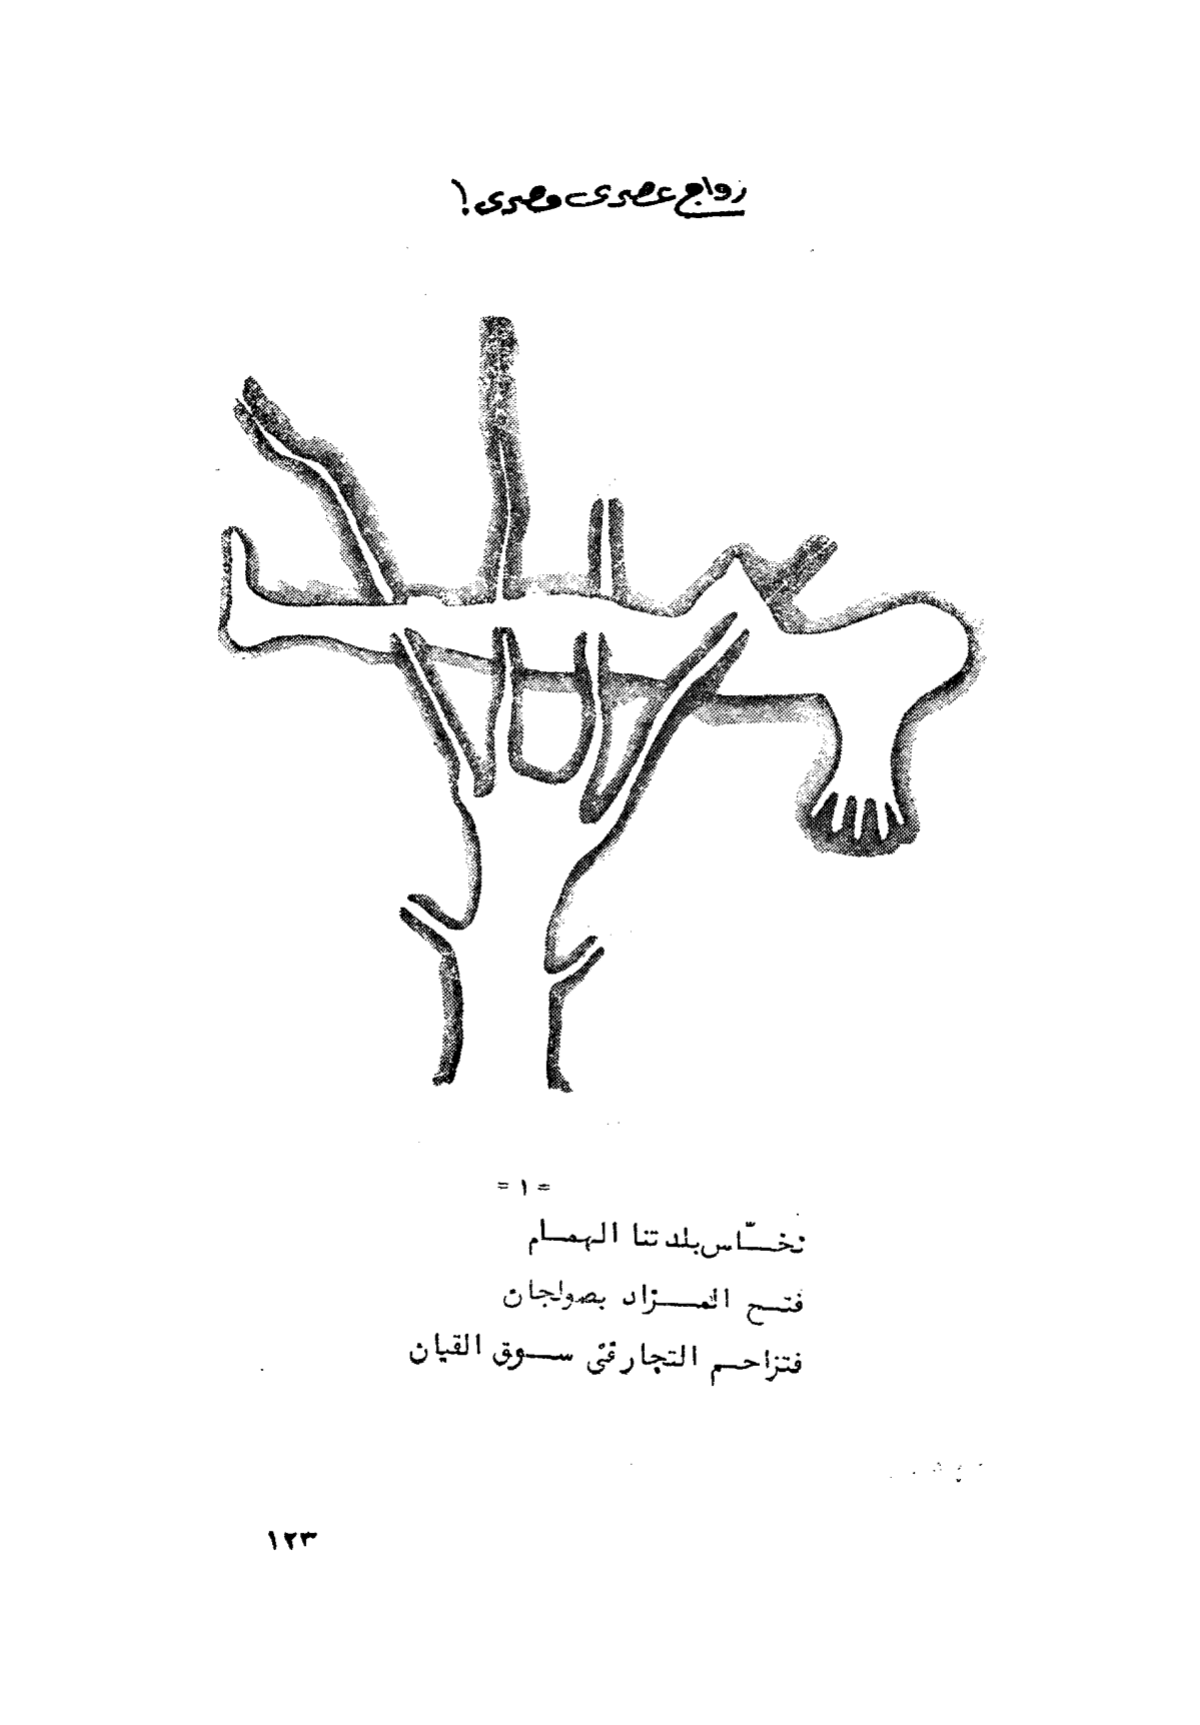 زواج عصرى مصرى!
= ١ =
نخــاّس بلدتنا الهمــام
فتــح المــزاد بصولجان
فتزاحــم التجار فى ســوق القيان
١٢٣